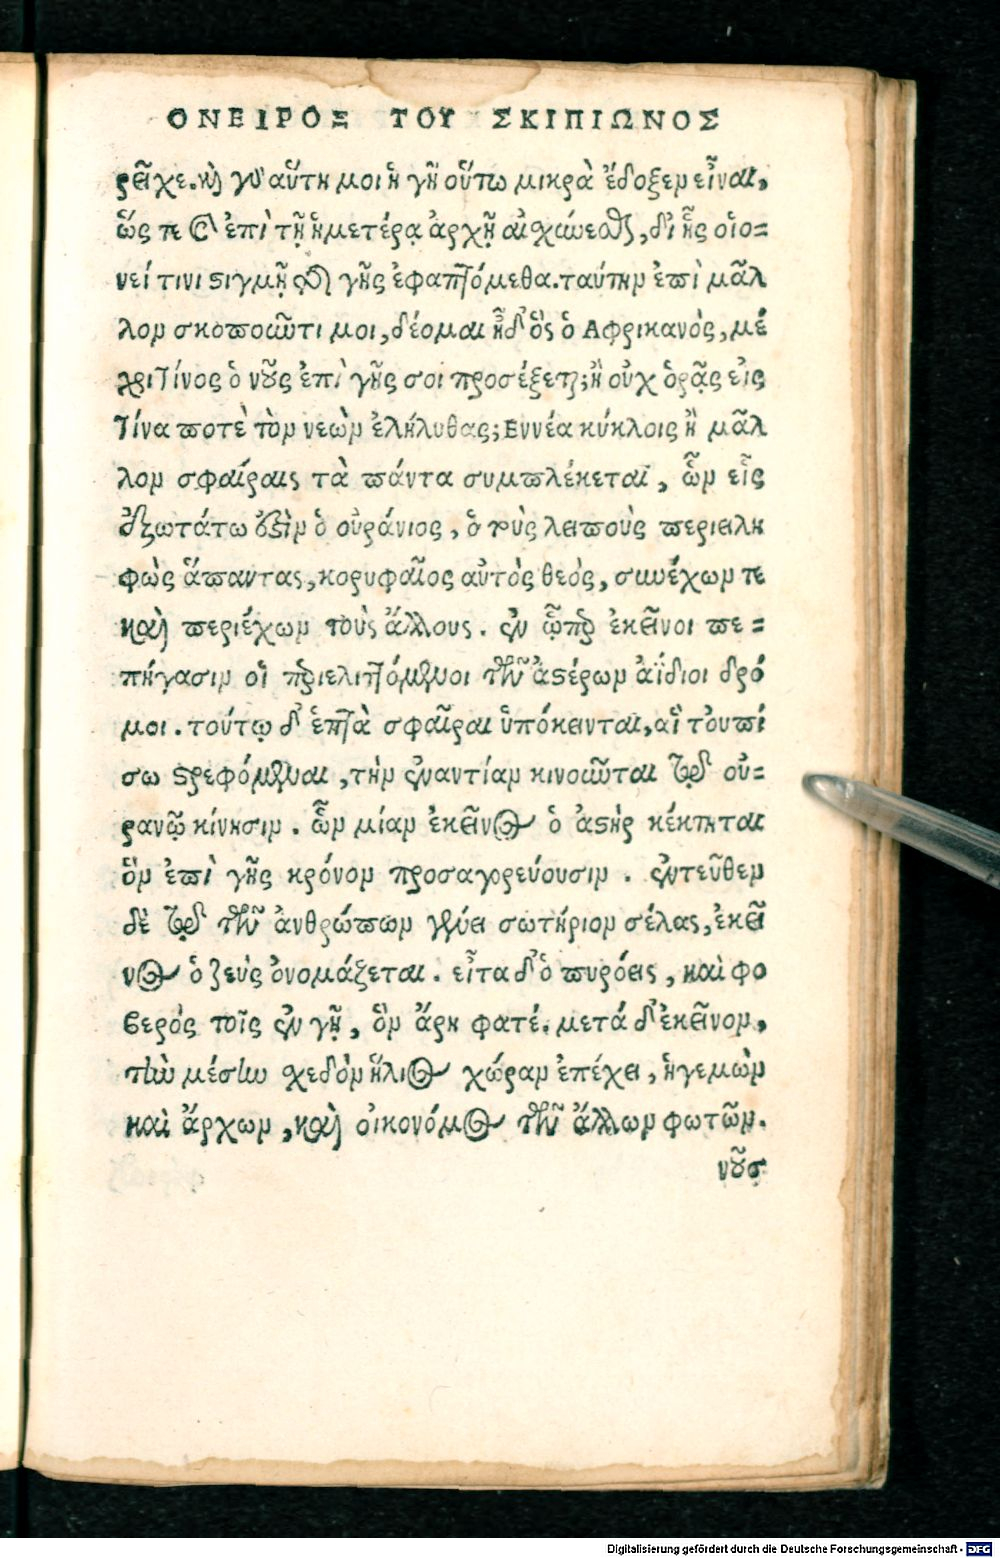 ΟΝΕΙΡΟΣ ΤΟΥ ΣΚΙΠΙΩΝΟΣ
ρεῖχε. καὶ γοῦν αὕτη μοι ἡ γῆ οὕτω μικρὰ ἔδοξεν εἶναι,
ὥς τε ἐπὶ τῇ ἡμετέρᾳ ἀρχῇ αἰσχύνεσθαι, δι ἧς οἱο=
νεί τινι στιγμῇ τῆς γῆς ἐφαπτόμεθα. ταύτην ἐπὶ μᾶλ
λον σκοποῦντι μοι, δέομαι ἦ δ̓ ὃς ὁ Αφρικανὸς, μέ
χρι τίνος ὁ νοῦς ἐπὶ γῆς σοι προσέξεται; ἢ οὐχ ὁρᾷς εἰς
τίνα ποτὲ τὸν νεὼν ἐλήλυθας; Εννέα κύκλοις ἢ μᾶλ
λον σφαίραις τὰ πάντα συμπλέκεται, ὧν εἷς
ἐξωτάτω ἐστὶν ὁ οὐράνιος, ὁ τοὺς λειποὺς περιειλη
φὼς ἅπαντας, κορυφαῖος αὐτὸς θεὸς, συνέχων τε
καὶ περιέχων τοὺς ἄλλους. ἐν ᾧπερ ἐκεῖνοι πε=
πήγασιν οἱ περιελιττόμενοι τῶν ἀστέρων ἀΐδιοι δρό
μοι. τούτῳ δ̓ ἑπτὰ σφαῖραι ὑπόκεινται, αἳ τοὐπί
σω στρεφόμεναι, τὴν ἐναντίαν κινοῦνται τῷ οὐ=
ρανῷ κίνησιν. ὧν μίαν ἐκεῖνος ὁ ἀστὴρ κέκτηται
ὃν ἐπὶ γῆς κρόνον προσαγορεύουσιν. ἐντεῦθεν
δὲ τῷ τῶν ἀνθρώπων γένει σωτήριον σέλας, ἐκεῖ
νος ὁ ζεὺς ὀνομάζεται. εἶτα δ̓ ὁ πυρόεις, καὶ φο
βερὸς τοῖς ἐν γῇ, ὃν ἄρη φατέ. μετά δ̓ ἐκεῖνον,
τὴν μέσην σχεδὸν ἥλιος χώραν ἐπέχει, ἡγεμὼν
καὶ ἄρχων, καὶ οἰκονόμος τῶν ἄλλων φωτῶν.
νοῦς
Digitalisierung gefördert durch die Deutsche Forschungsgemeinschaft - DFG